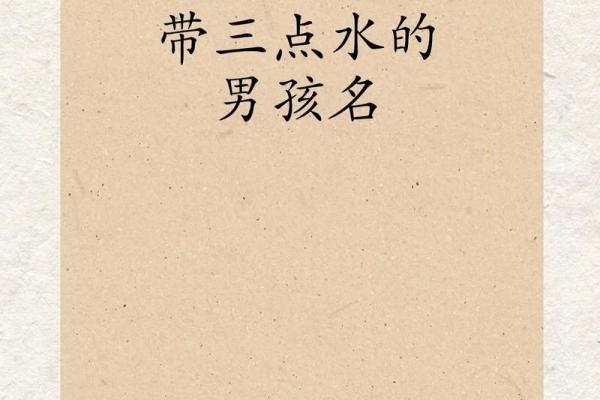 带三点水的
男孩名